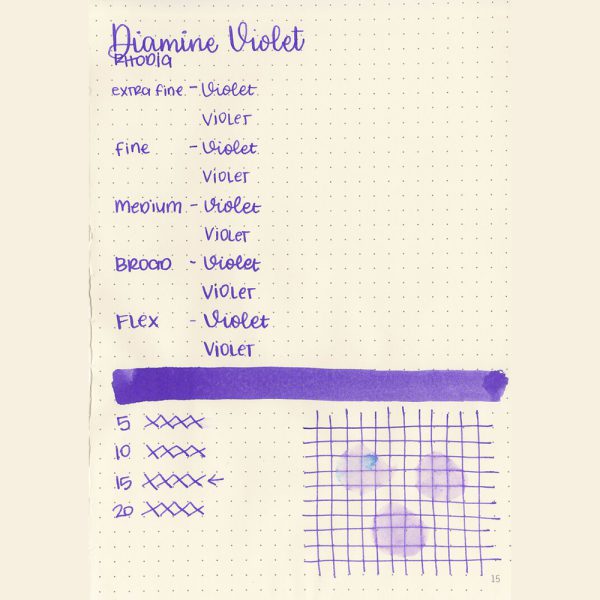 Diamine Violet
RHODIA
extra fine - Violet
VIOLET
fine - Violet
VIOLET
Medium - Violet
VIOLET
BROAD - Violet
VIOLET
FLEX - Violet
VIOLET
5 XXXX
10 XXXX
15 XXXX ←
20 XXXX
15